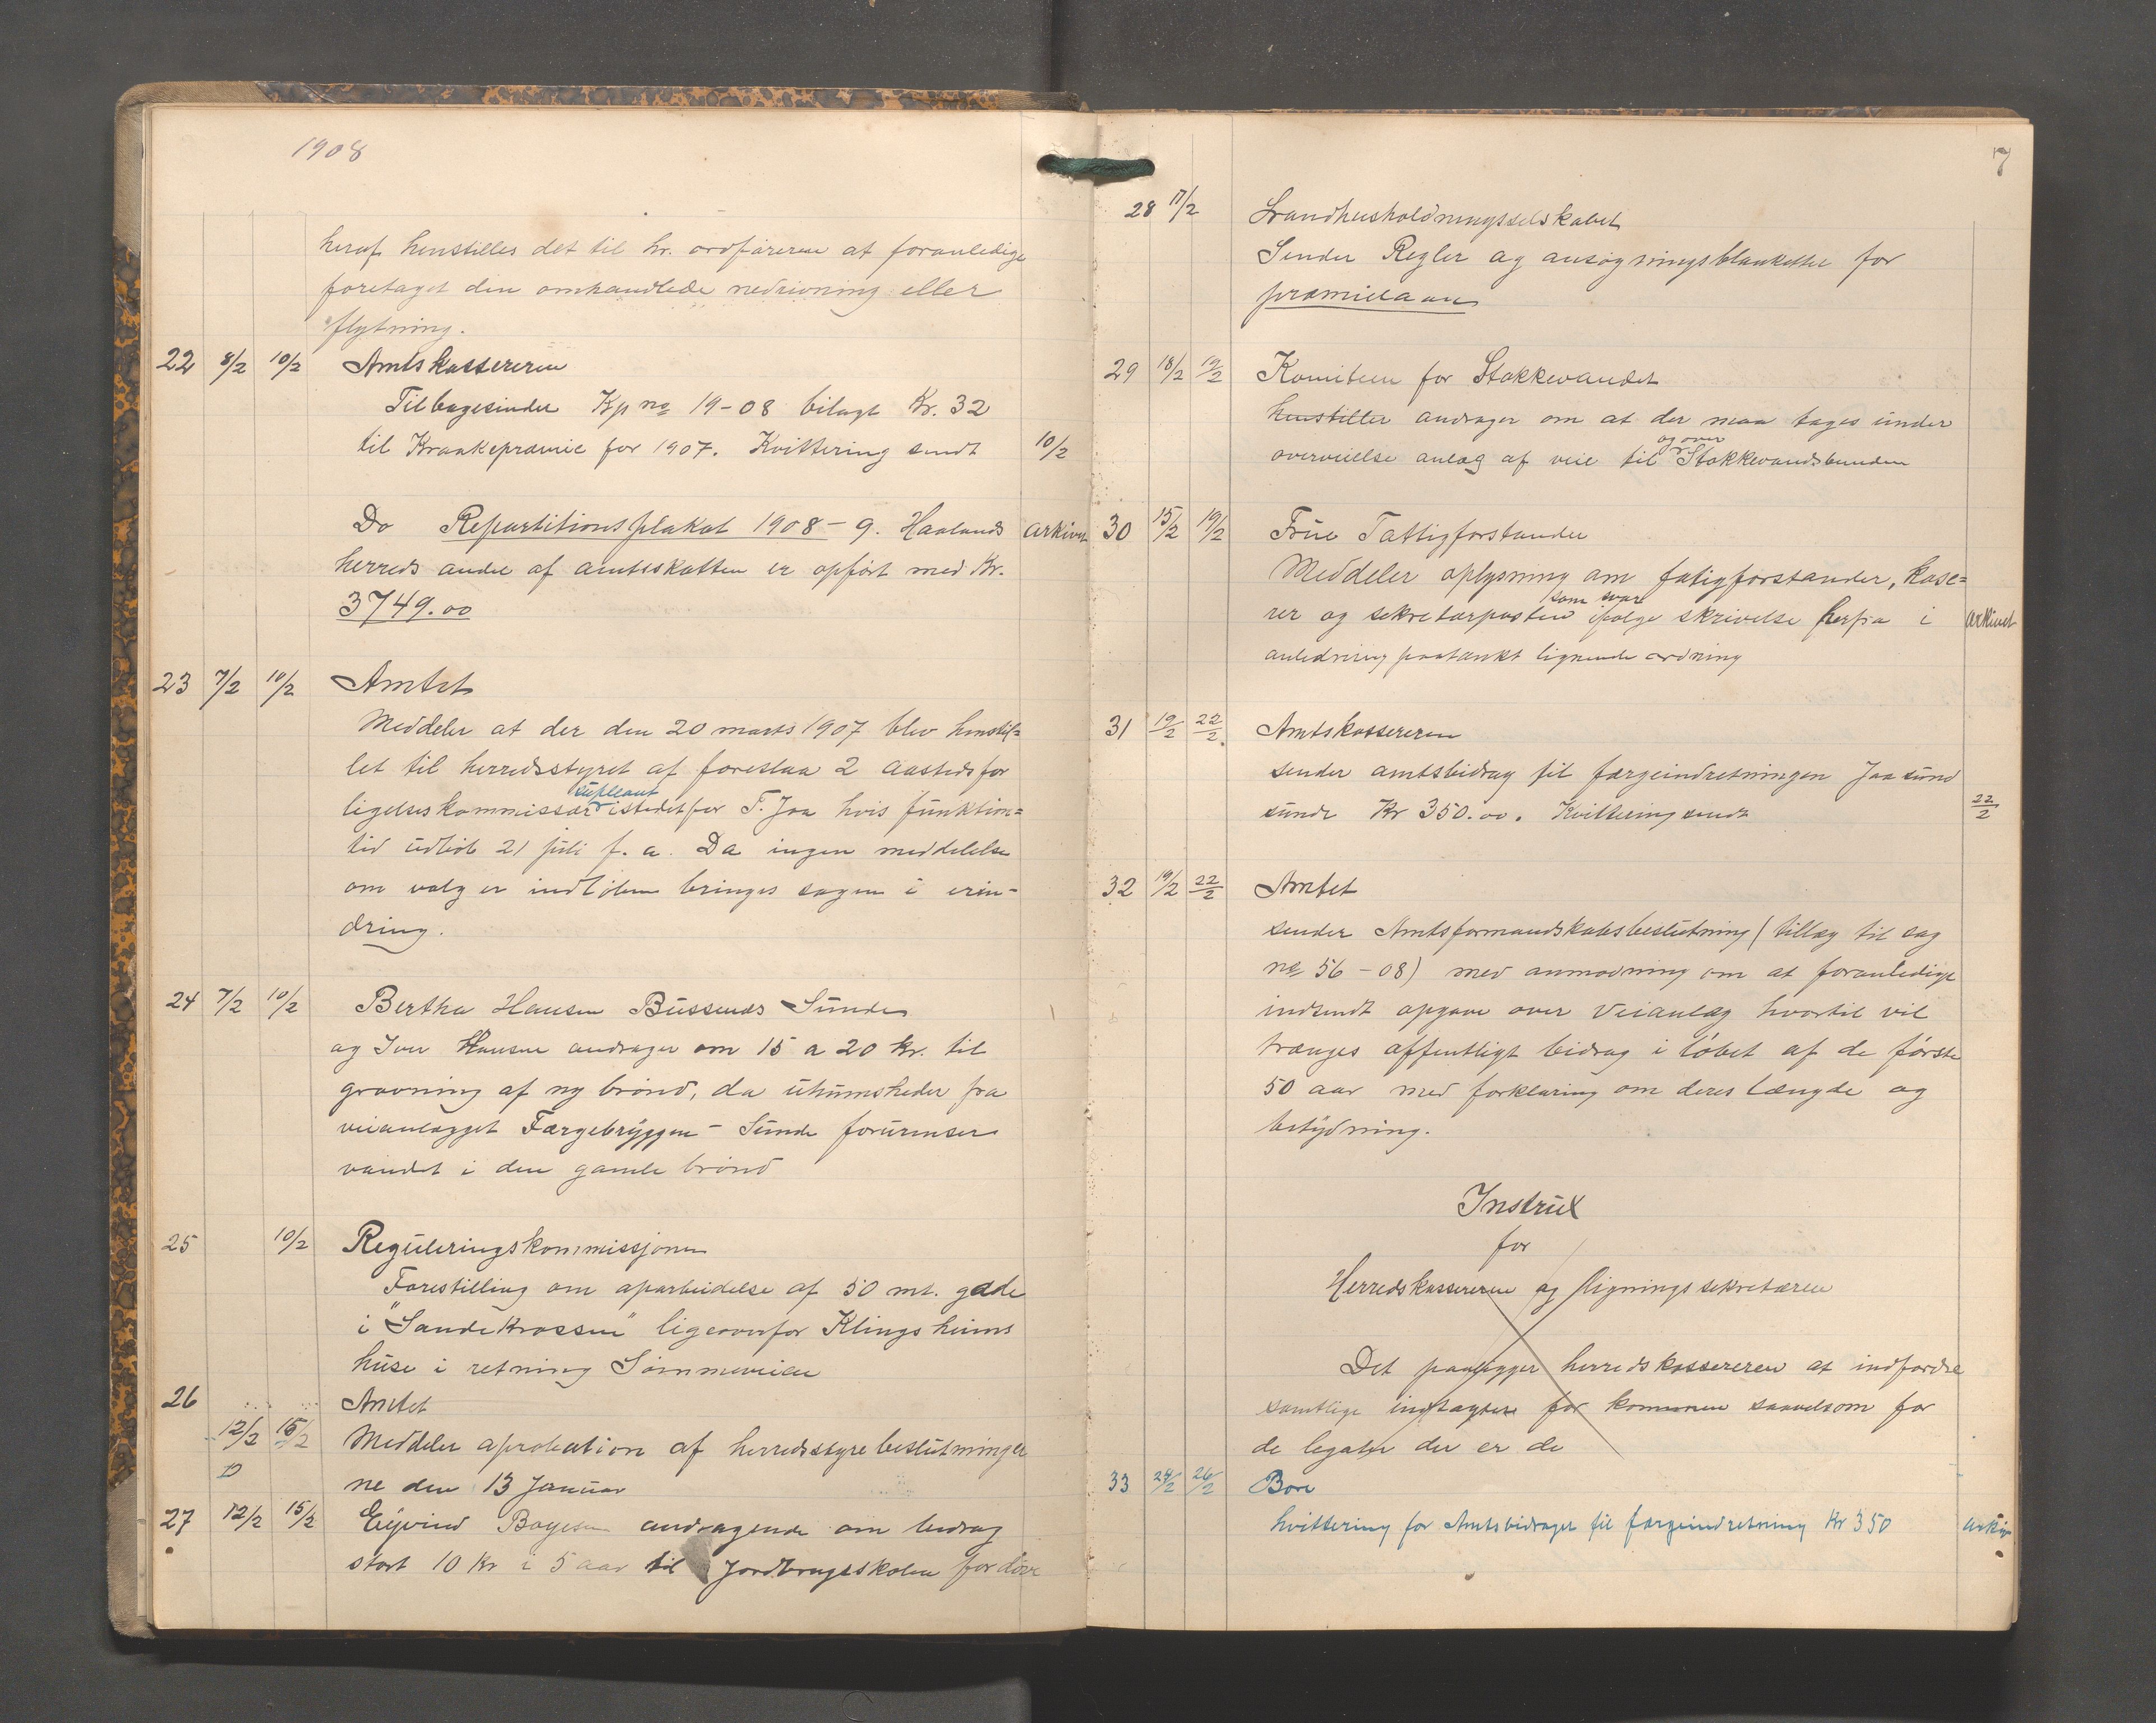 1908
heraf henstilles det til hr. ordføreren at foranledige
foretaget den omhandlede nedrivning eller
flytning.
22 8/2 10/2 Amtskassereren
Tilbagesender Kp no 19-08 bilagt Kr. 32
til Kraakepræmie for 1907. Kvittering sendt 10/2
Do Repartitionsplakat 1908-9. Haalands arkivet
herreds andel af amtsskatten er opført med Kr.
3749.00
23 7/2 10/2 Amtet
Meddeler at der den 20 marts 1907 blev henstil=
let til herredsstyret at foreslaa 2 aastedsfor
supleant
ligelseskommissær istedetfor T. Jaa hvis funktion=
tid udløb 21 juli f. a. Da ingen meddelelse
om valg er indløben bringes sagen i erin-
dring.
24 7/2 10/2 Bertha Hansen Bussenes Sunde
og Iver Hansen andrager om 15 a 20 kr. til
gravning af ny brønd, da uhumsheder fra
veianlægget Færgebryggen - Sunde forurenser
vandet i den gamle brønd
25 10/2 Reguleringskommissjonen
Forestilling om oparbeidelse af 50 mt. gade
i "Sandekrossen" ligeoverfor Klingsheims
huse i retning Sømmeveien
26 Amtet
12/2 15/2 Meddeler aprobation af herredsstyrebeslutninger
ne den 13 Januar
27 12/2 15/2 Eyvind Boyesen andragende om bidrag
stort 10 Kr i 5 aar til Jordbrugsskolen for døve
7
28 17/2 Landhusholdningsselskabet
Sender Regler og ansøgningsblanketter for
præmielaan
29 18/2 19/2 Komiteen for Stokkevandet
henstiller andrager om at der maa tages under
og over
overveielse anlæg af veie til Stokkevandsbunden
30 15/2 19/2 Frue Fattigforstander
Meddeler oplysning om fatigforstander, kase=
som svar
rer og sekretærposten ifølge skrivelse herfra i arkivet
anledning paatænkt lignende ordning
31 19/2 22/2 Amtskassereren
sender amtsbidrag til færgeindretningen Jaasund
sunde Kr 350.00. Kvittering sendt 22/2
32 19/2 22/2 Amtet
sender Amtsformandskabsbeslutning (tillæg til sag
no 56-08) med anmodning om at foranledige
indsendt opgave over Veianlæg hvortil vil
trænges offentligt bidrag i løbet af de første
50 aar med forklaring om deres længde og
betydning.
Instrux
for
Herredskassereren og ligningssekretæren
Det paalægger herredskassereren at indfordre
samtlige indtægter for kommunen saavelsom for
de legater der er de
33 24/2 26/2 Bore
kvittering for Amtsbidraget til færgeindretning Kr 350 arkiv